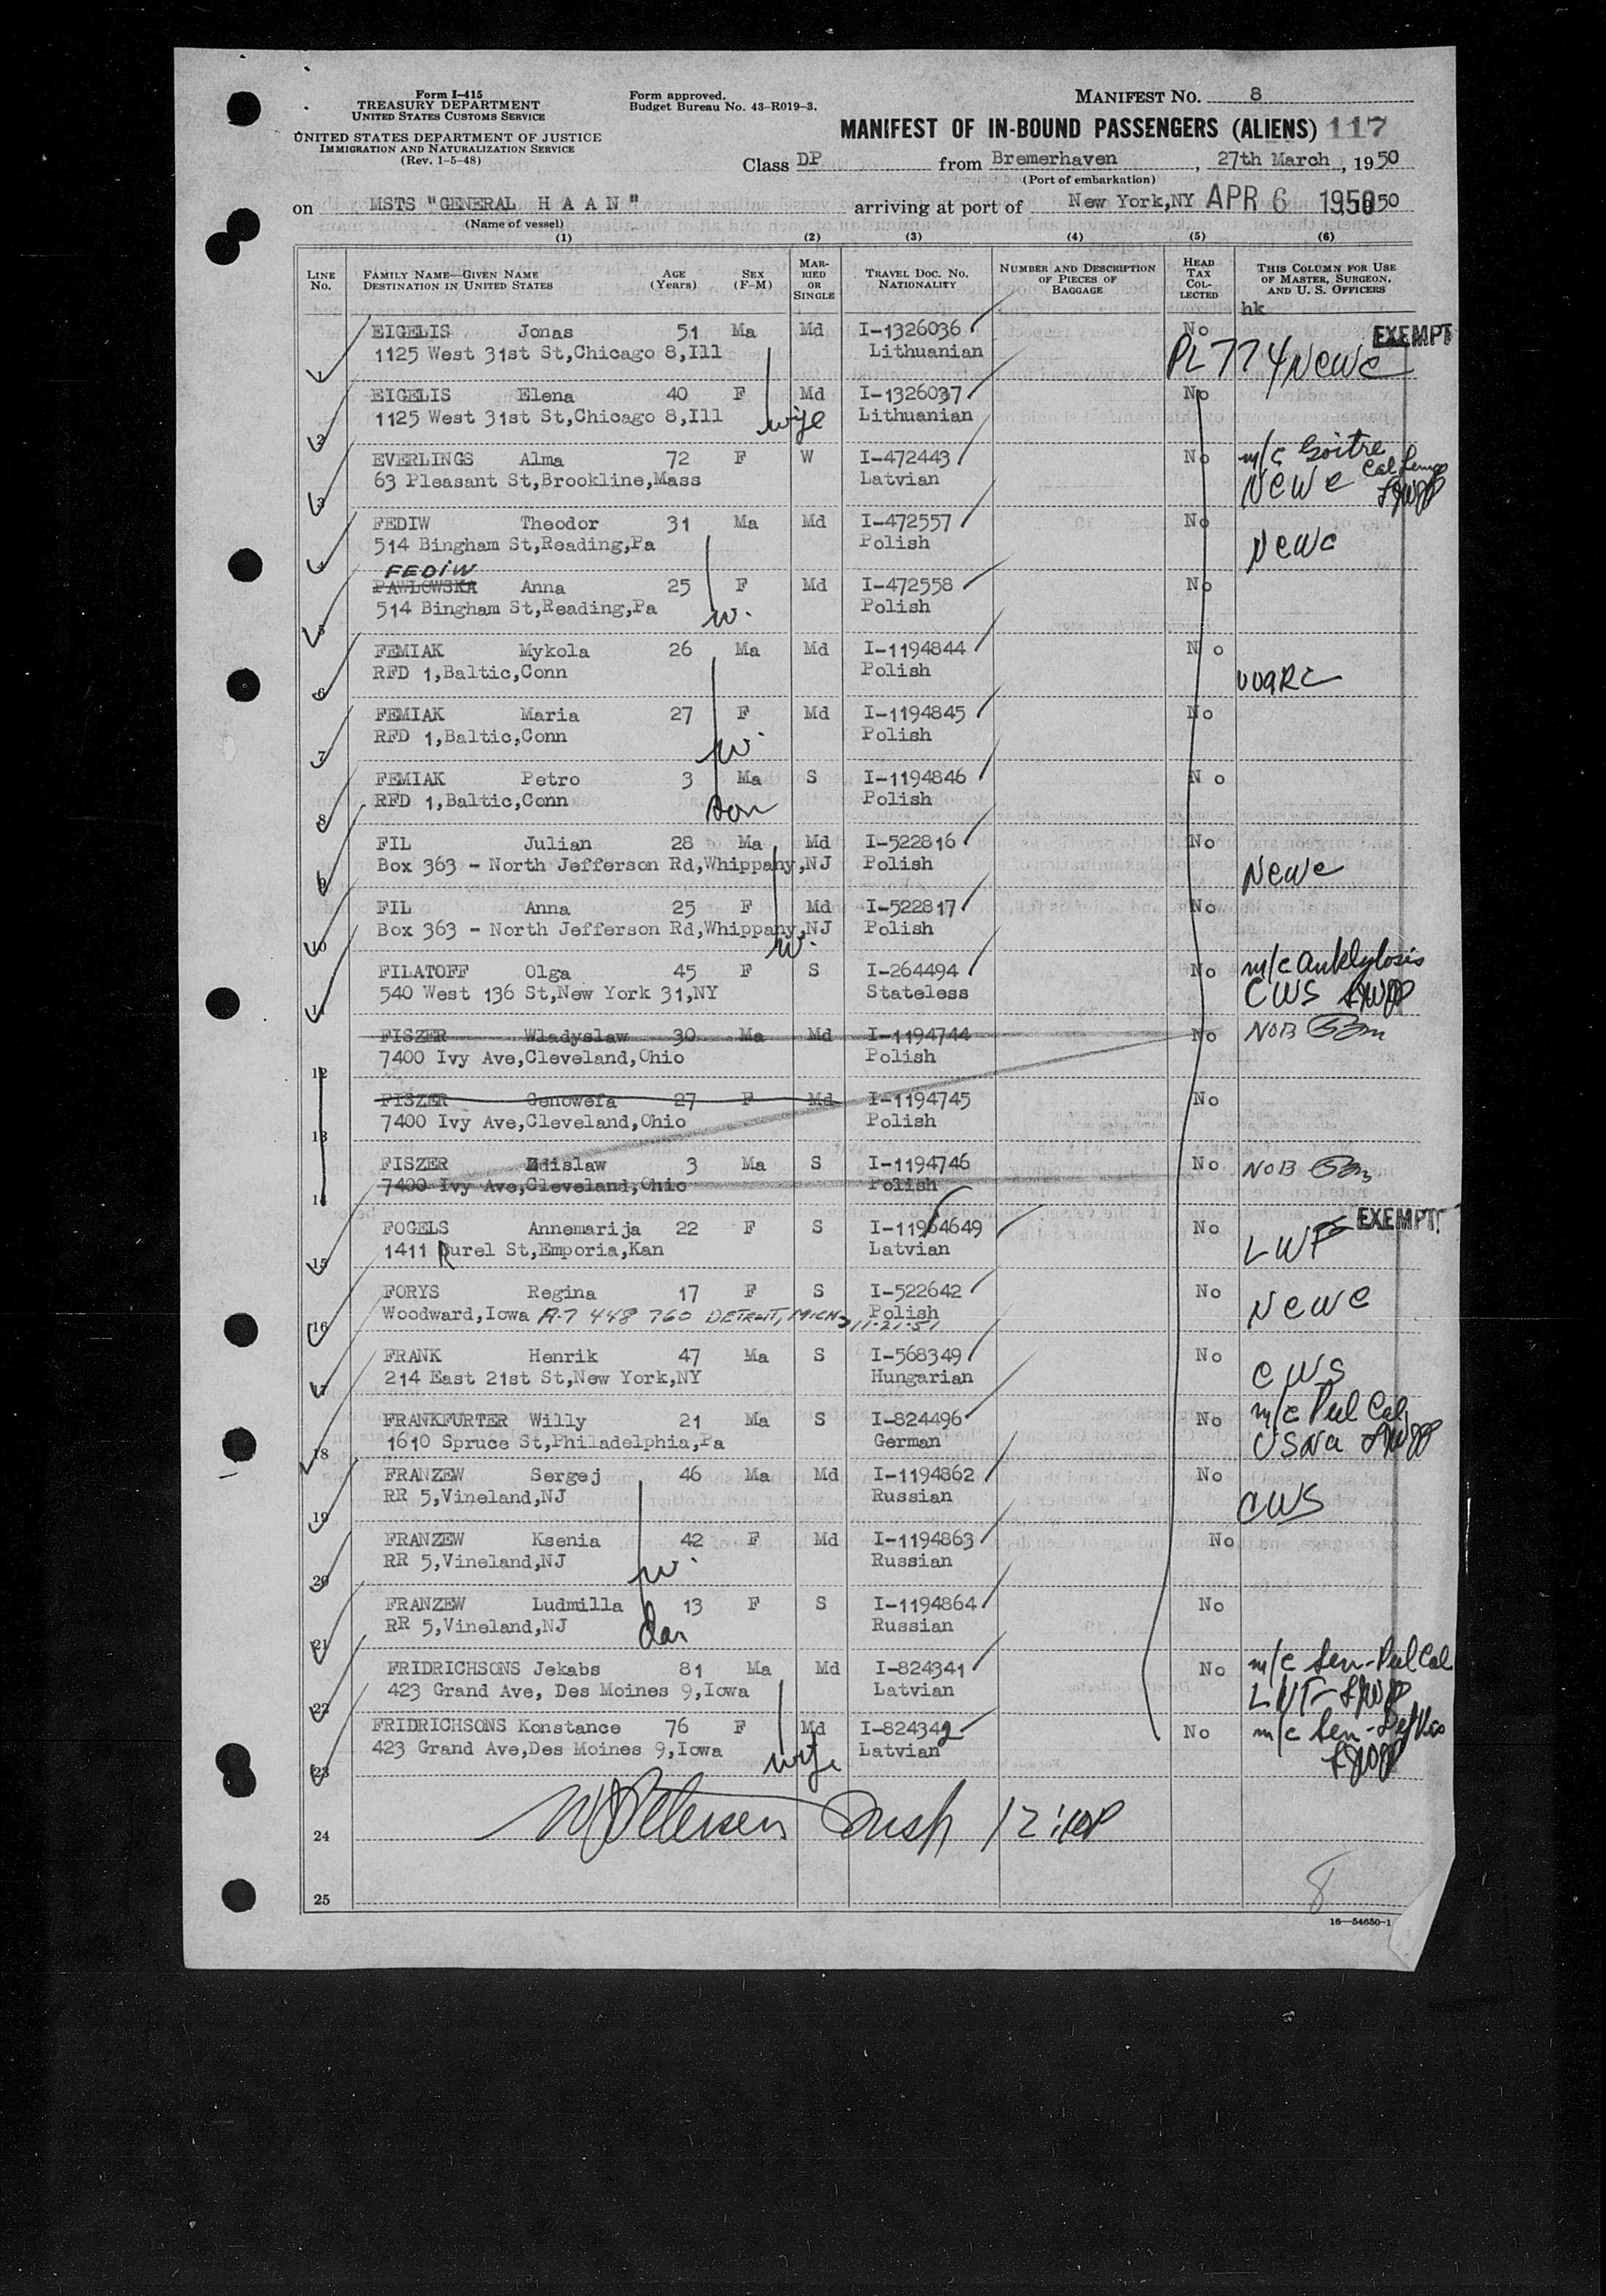 Form I-415
TREASURY DEPARTMENT
UNITED STATES CUSTOMS SERVICE
UNITED STATES DEPARTMENT OF JUSTICE
IMMIGRATION AND NATURALIZATION SERVICE
(Rev. 1-5-48)
Form approved.
Budget Bureau No. 43-R019-3.
MANIFEST NO. 8
MANIFEST OF IN-BOUND PASSENGERS (ALIENS) 117
Class DP from Bremerhaven, 27th March, 1950
(Port of embarkation)
on MSTS "GENERAL H A A N" arriving at port of New York,NY APR 6 1950 50
(Name of vessel)
(1) (2) (3) (4) (5) (6)
LINE No. FAMILY NAME—GIVEN NAME DESTINATION IN UNITED STATES AGE (Years) SEX (F-M) MARRIED OR SINGLE TRAVEL DOC. NO. NATIONALITY NUMBER AND DESCRIPTION OF PIECES OF BAGGAGE HEAD TAX COLLECTED THIS COLUMN FOR USE OF MASTER, SURGEON, AND U. S. OFFICERS
hk
EIGELIS Jonas 51 Ma Md I-1326036 No EXEMPT
1 1125 West 31st St,Chicago 8,Ill Lithuanian PL 774 NCWC
EIGELIS Elena 40 F Md I-1326037 No
2 1125 West 31st St,Chicago 8,Ill wife Lithuanian
EVERLINGS Alma 72 F W I-472443 No m/c Goitre
3 63 Pleasant St,Brookline,Mass Latvian NCWC
FEDIW Theodor 31 Ma Md I-472557 No
4 514 Bingham St,Reading,Pa Polish NCWC
FEDIW
PAWLOWSKA Anna 25 F Md I-472558 No
5 514 Bingham St,Reading,Pa w. Polish
FEMIAK Mykola 26 Ma Md I-1194844 No
6 RFD 1,Baltic,Conn Polish UUARC
FEMIAK Maria 27 F Md I-1194845 No
7 RFD 1,Baltic,Conn w. Polish
FEMIAK Petro 3 Ma S I-1194846 No
8 RFD 1,Baltic,Conn son Polish
FIL Julian 28 Ma Md I-522816 No
9 Box 363 - North Jefferson Rd,Whippany,NJ Polish NCWC
FIL Anna 25 F Md I-522817 No
10 Box 363 - North Jefferson Rd,Whippany,NJ w. Polish
FILATOFF Olga 45 F S I-264494 No m/c anklylosis
11 540 West 136 St,New York 31,NY Stateless CWS
FISZER Wladyslaw 30 Ma Md I-1194744 No NOB
12 7400 Ivy Ave,Cleveland,Ohio Polish
FISZER Genowefa 27 F Md I-1194745 No
13 7400 Ivy Ave,Cleveland,Ohio Polish
FISZER Zdislaw 3 Ma S I-1194746 No NOB
14 7400 Ivy Ave,Cleveland,Ohio Polish
FOGELS Annemarija 22 F S I-11964649 No EXEMPT
15 1411 Rurel St,Emporia,Kan Latvian LWF
FORYS Regina 17 F S I-522642 No
16 Woodward,Iowa A-7 448 760 DETROIT, MICH 11-21-51 Polish NCWC
FRANK Henrik 47 Ma S I-568349 No
17 214 East 21st St,New York,NY Hungarian CWS
FRANKFURTER Willy 21 Ma S I-824496 No m/c Pul Cal
18 1610 Spruce St,Philadelphia,Pa German USNA
FRANZEW Sergej 46 Ma Md I-1194862 No
19 RR 5,Vineland,NJ Russian CWS
FRANZEW Ksenia 42 F Md I-1194863 No
20 RR 5,Vineland,NJ w. Russian
FRANZEW Ludmilla 13 F S I-1194864 No
21 RR 5,Vineland,NJ dau Russian
FRIDRICHSONS Jekabs 81 Ma Md I-824341 No m/c Sen-Pul Cal
22 423 Grand Ave, Des Moines 9,Iowa Latvian
FRIDRICHSONS Konstance 76 F Md I-824342 No m/c Sen-
23 423 Grand Ave,Des Moines 9,Iowa wife Latvian
24 Insp
25 8
16—54650-1